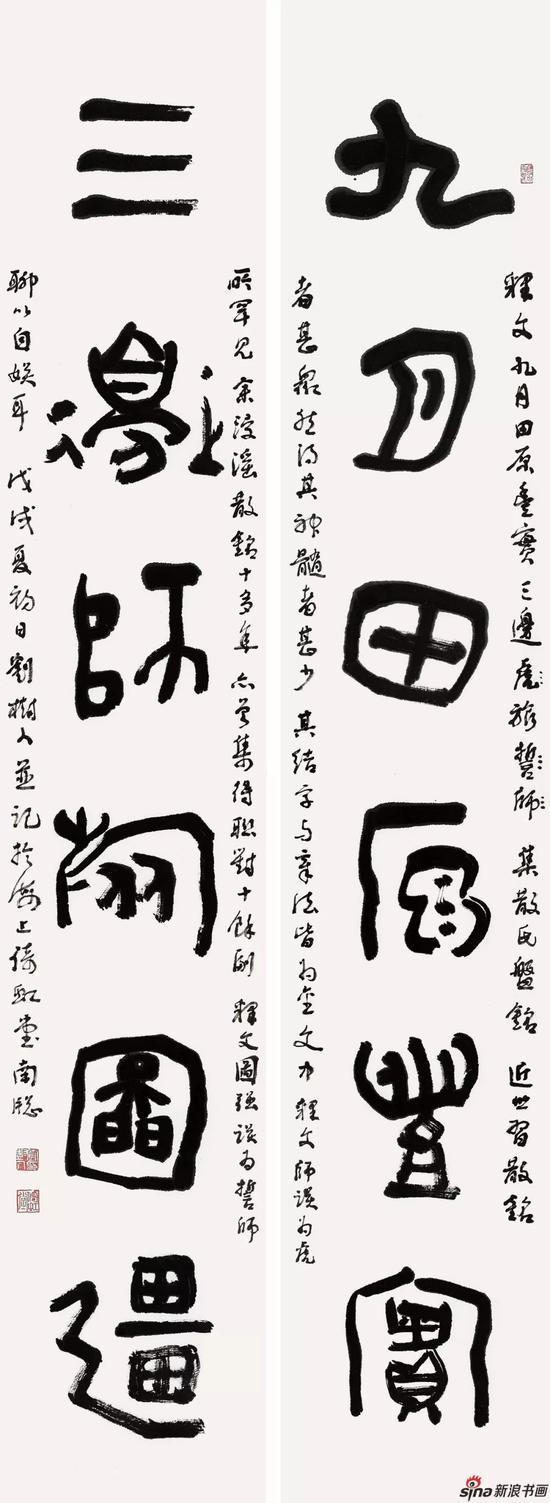 九月田原豐實
三邊師旅圖彊
釋文 九月田原豐實 三邊虎旅誓師 集散氏盤銘 近世習散銘
者甚衆然得其神髓者甚少 其結字与章法皆為金文中 釋文師誤為虎
所罕見 余浸淫散銘十多年 亦曾集得聯對十餘副 釋文圖強誤為誓師
聊以自娛耳 戊戌夏初日劉樹人並記於海上倚虹堂南窗
sina新浪书画